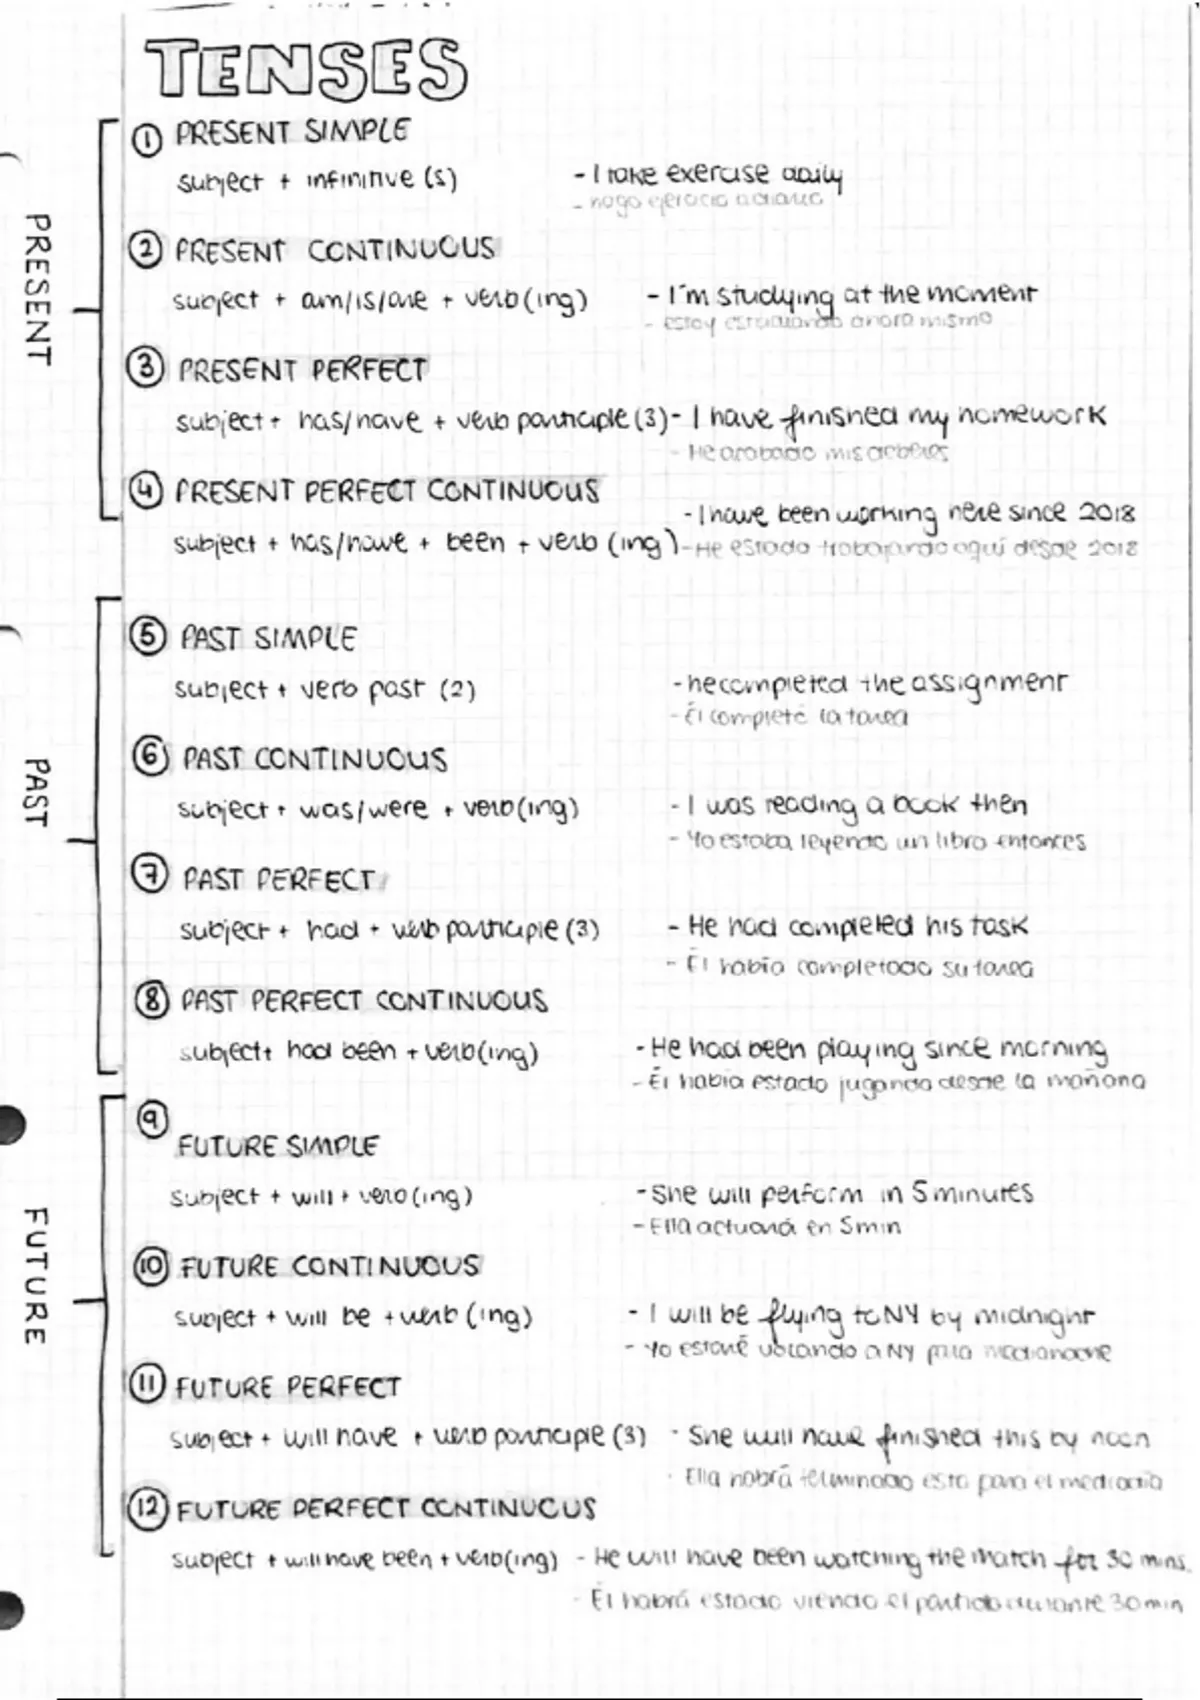 TENSES
① PRESENT SIMPLE
subject + infinitive (s) - I take exercise daily
- hago ejercicio a diario
② PRESENT CONTINUOUS
subject + am/is/are + verb(ing) - I'm studying at the moment
- estoy estudiando ahora mismo
③ PRESENT PERFECT
subject + has/have + verb participle (3) - I have finished my homework
- He acabado mis deberes
④ PRESENT PERFECT CONTINUOUS
- I have been working here since 2018
subject + has/have + been + verb (ing) - He estado trabajando aquí desde 2018
PRESENT
⑤ PAST SIMPLE
subject + verb past (2) - he completed the assignment
- Él completó la tarea
⑥ PAST CONTINUOUS
subject + was/were + verb(ing) - I was reading a book then
- Yo estaba leyendo un libro entonces
⑦ PAST PERFECT
subject + had + verb participle (3) - He had completed his task
- Él había completado su tarea
⑧ PAST PERFECT CONTINUOUS
subject + had been + verb(ing) - He had been playing since morning
- Él había estado jugando desde la mañana
PAST
⑨
FUTURE SIMPLE
subject + will + verb (ing) - She will perform in 5 minutes
- Ella actuará en 5 min
⑩ FUTURE CONTINUOUS
subject + will be + verb (ing) - I will be flying to NY by midnight
- Yo estaré volando a NY para medianoche
⑪ FUTURE PERFECT
subject + will have + verb participle (3) - She will have finished this by noon
- Ella habrá terminado esto para el mediodía
⑫ FUTURE PERFECT CONTINUOUS
subject + will have been + verb(ing) - He will have been watching the match for 30 mins.
- Él habrá estado viendo el partido durante 30 min
FUTURE